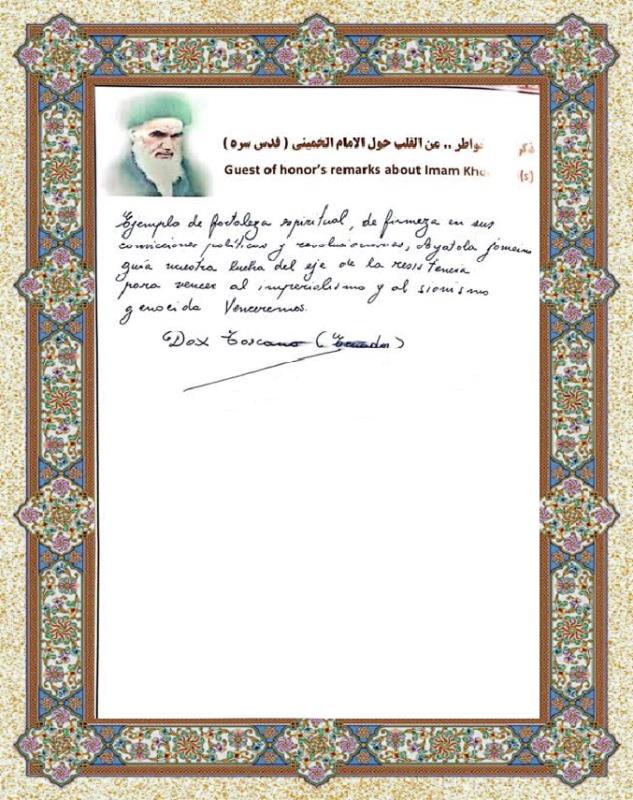 خواطر .. من القلب حول الامام الخميني ( قدس سره )
Guest of honor's remarks about Imam Kho (s)
Ejemplo de fortaleza espiritual, de firmeza en sus
convicciones políticas y revolucionarias, Ayatola Jomeini
guía nuestra lucha del eje de la resistencia
para vencer al imperialismo y al sionismo
genocida Venceremos.
Dax Toscano (Ecuador)